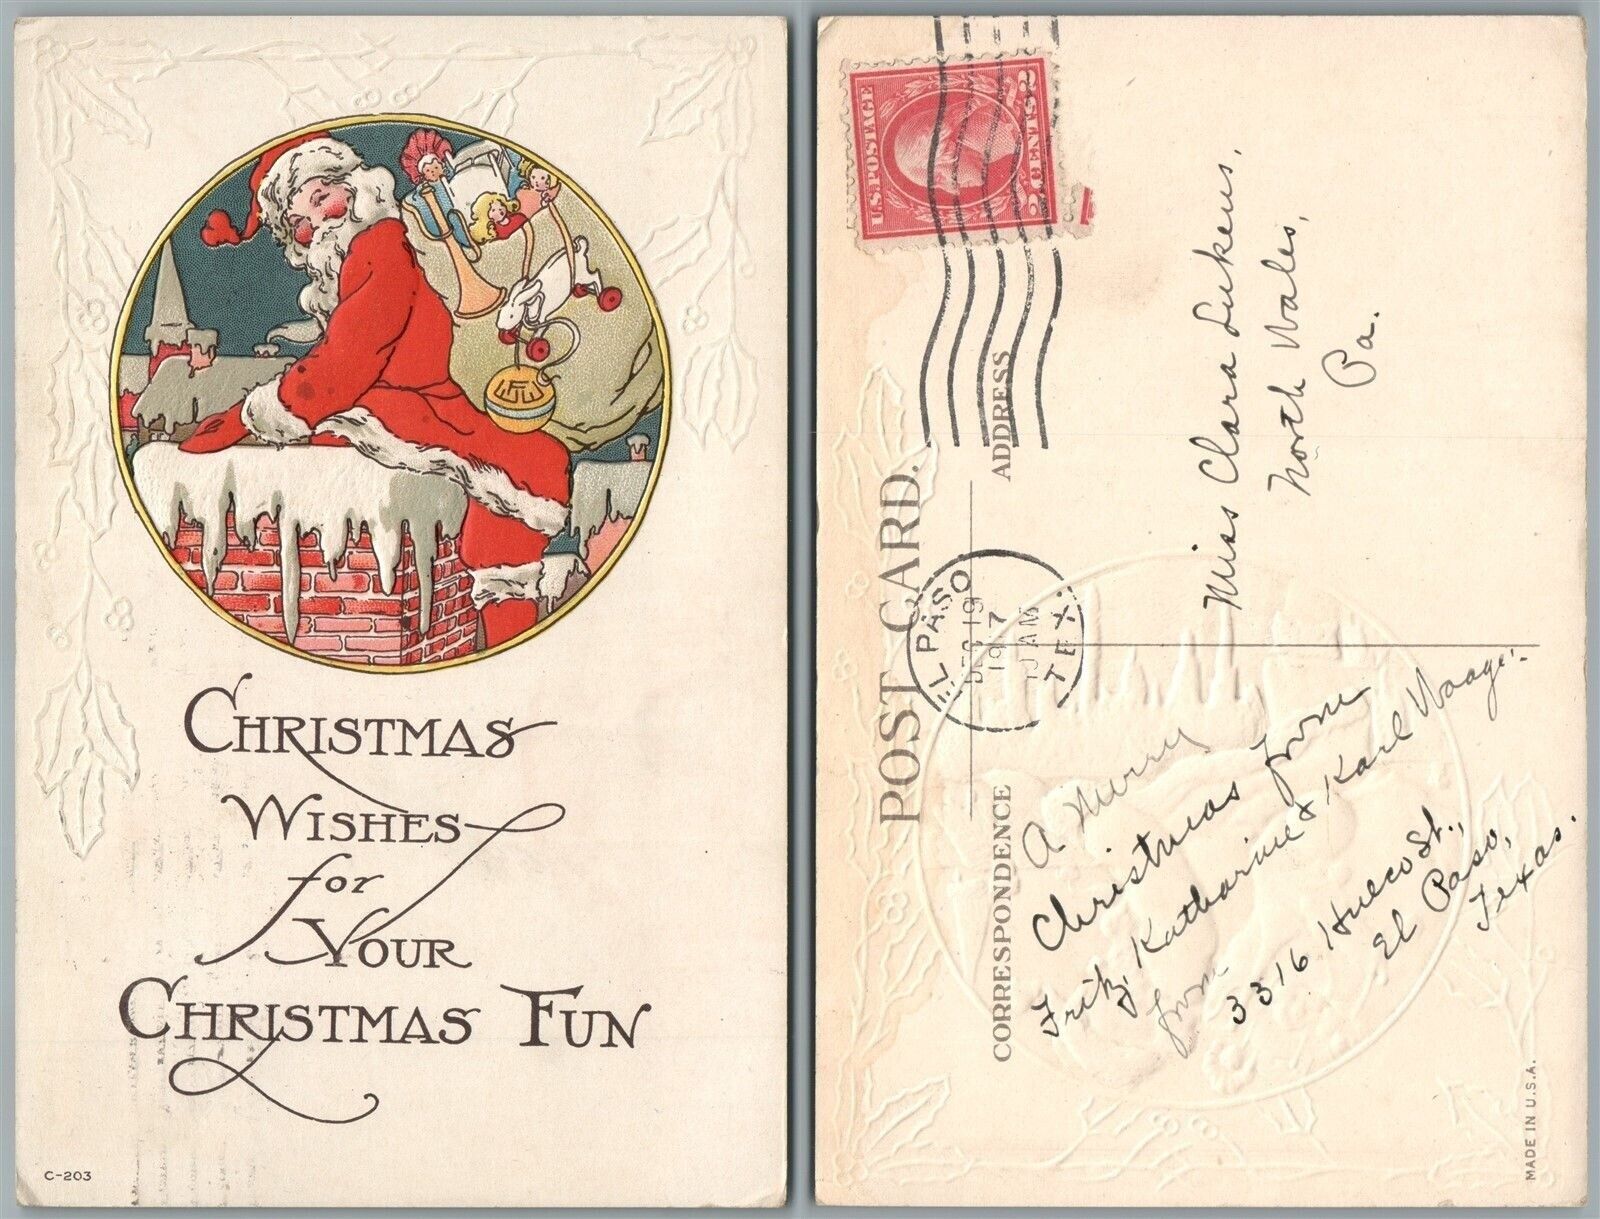 CHRISTMAS
WISHES
for
YOUR
CHRISTMAS FUN
C-203
U.S. POSTAGE
2 CENTS 2
EL PASO
DEC 19
1917
10 AM
TEX.
POST CARD.
CORRESPONDENCE
ADDRESS
Miss Clara Lukens,
North Wales,
Pa.
A Merry
Christmas from
Fritz, Katharine & Karl Waage.
from
3316 Hueco St.,
El Paso,
Texas.
MADE IN U.S.A.